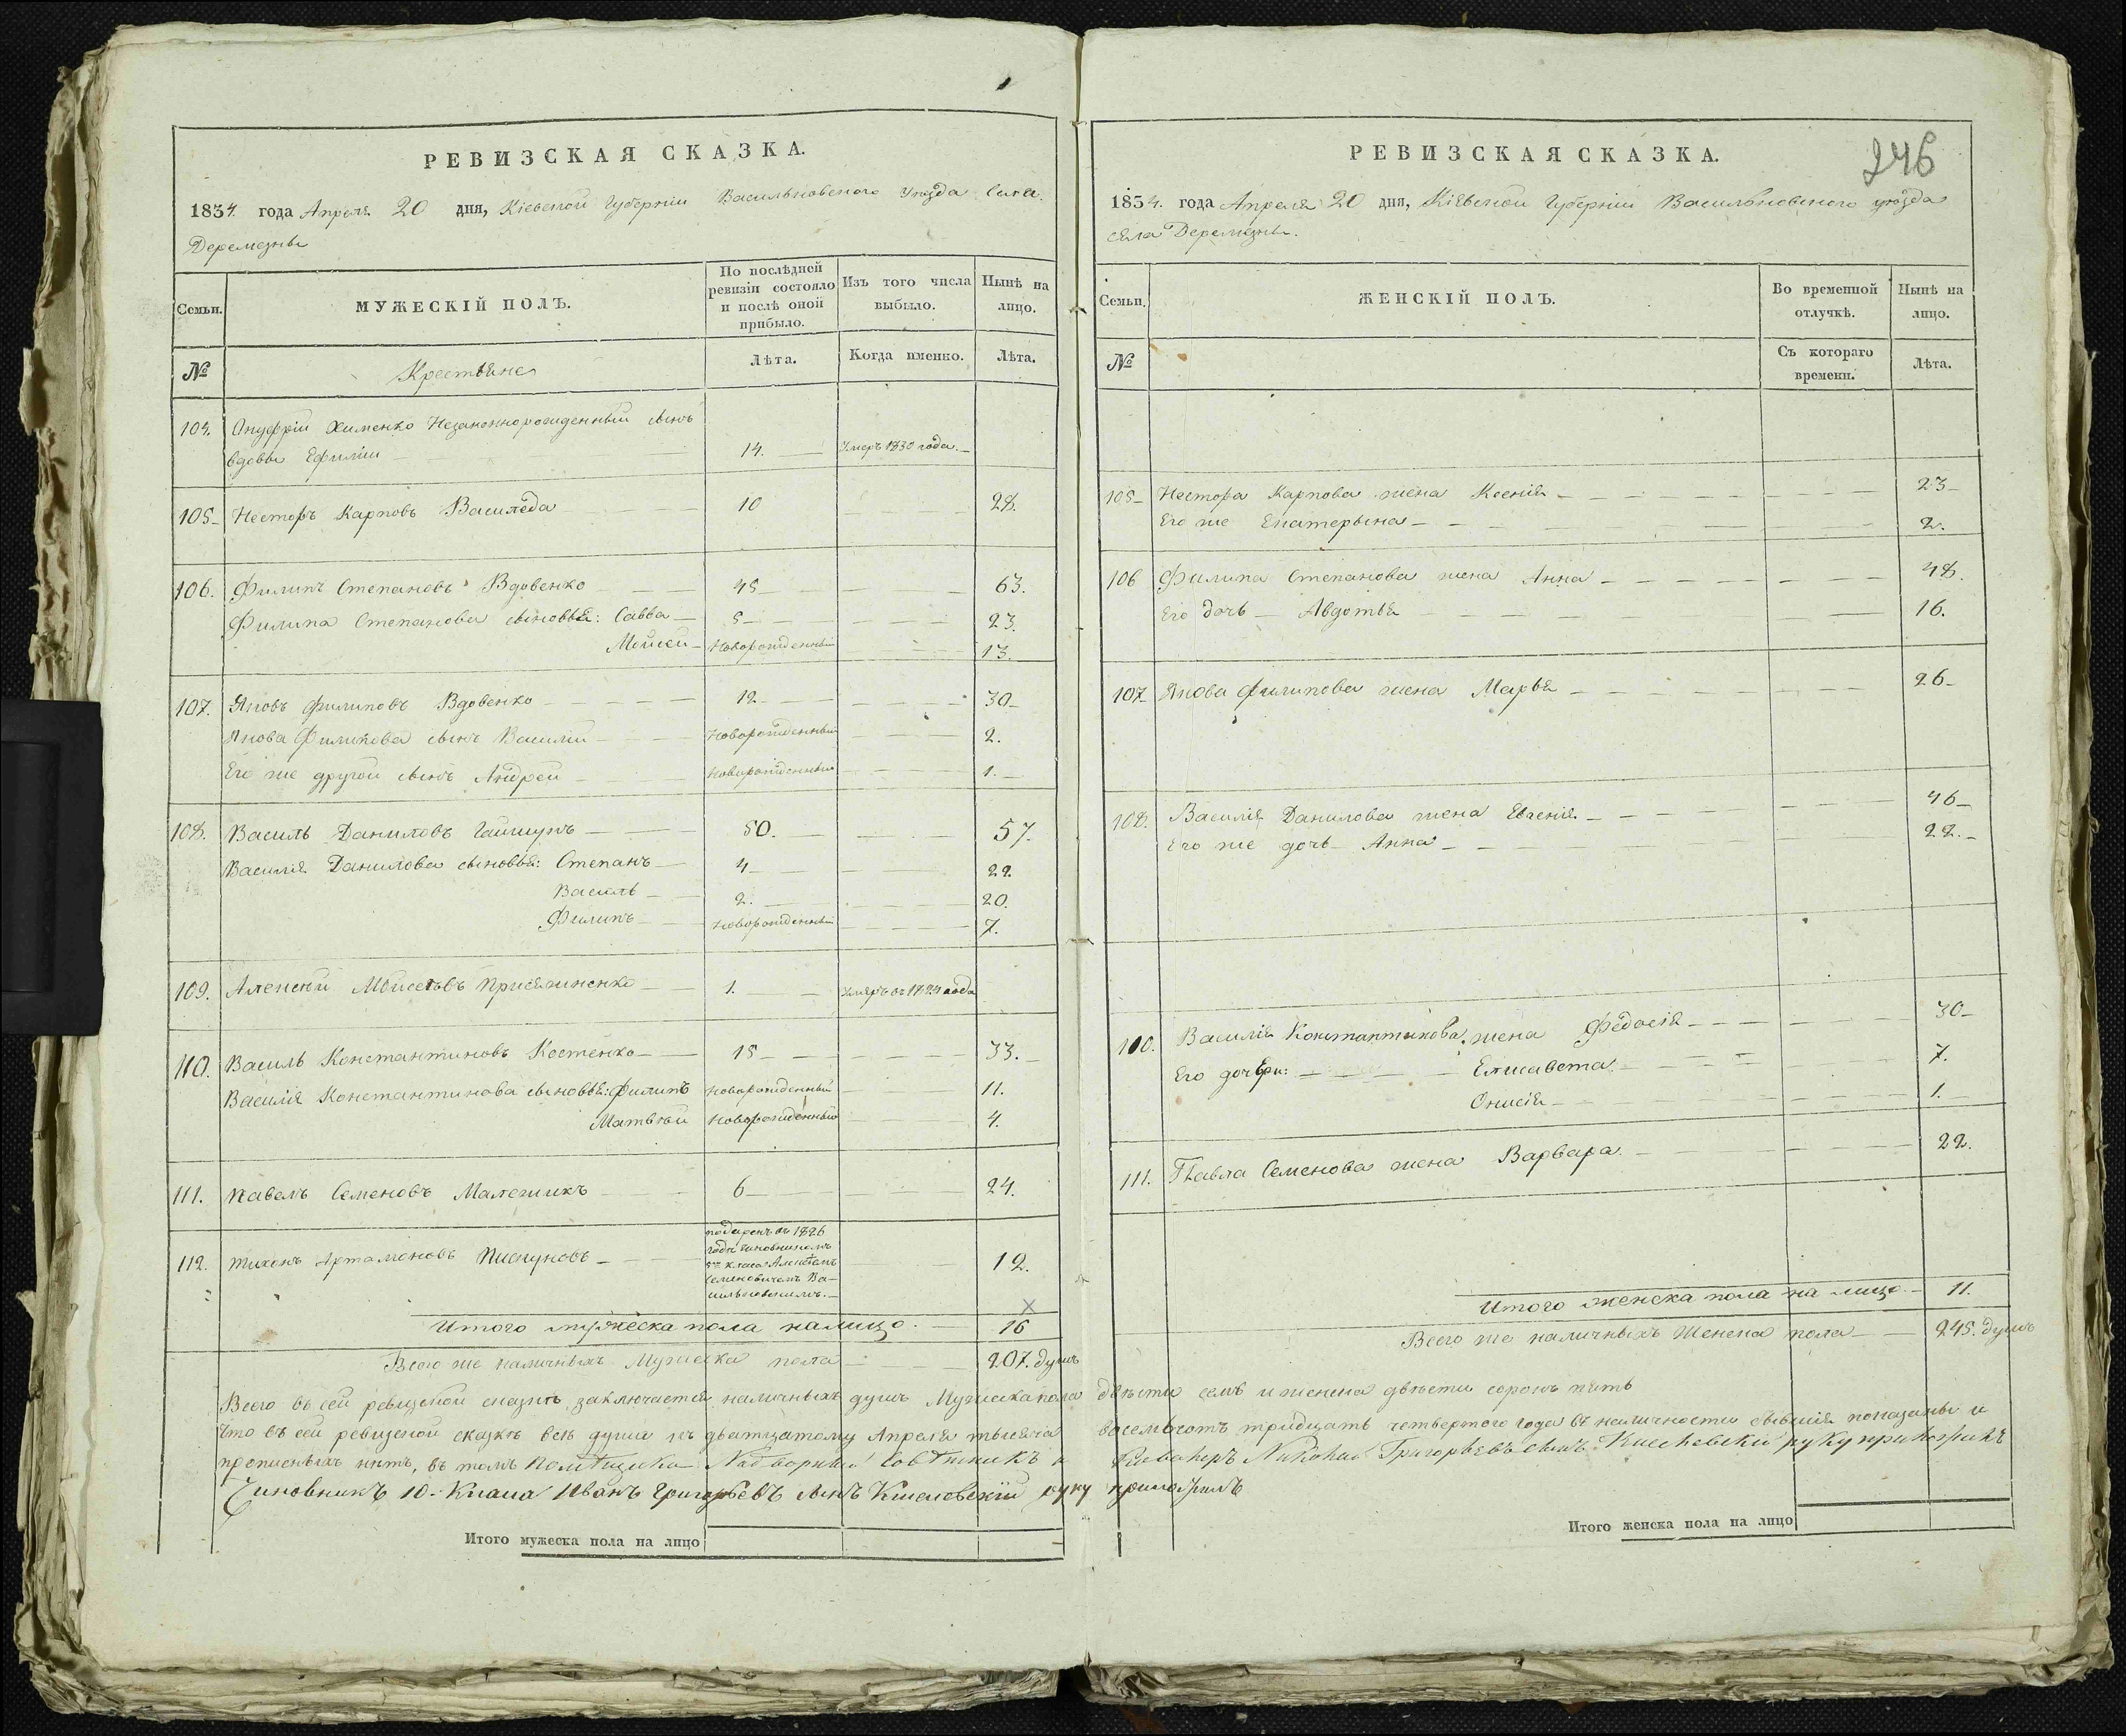 РЕВИЗСКАЯ СКАЗКА.
1834. года Апреля 20 дня, Кіевской Губерніи Васильковского уезда Села
Деремезны
Семьи.
МУЖЕСКІЙ ПОЛЪ.
По послѣдней ревизіи состояло и послѣ оной прибыло.
Изъ того числа выбыло.
Нынѣ на лицо.
№
Крестьяне
Лѣта.
Когда именно.
Лѣта.
104. Онуфрій Хименко Незаконнорожденный сынъ
вдовы Ефиміи 14. Умеръ 1830 года.
105 Несторъ Карповъ Василеда 10 28.
106. Филипъ Степановъ Вдовенко 45 63.
Филипа Степанова сыновья: Савва 5 23.
Мойсей Новорожденный 13.
107. Яковъ Филиповъ Вдовенко 12 30
Якова Филипова сынъ Василій Новорожденный 2.
Его же другой сынъ Андрей Новорожденный 1.
108. Василь Даниловъ 50. 57.
Василія Данилова сыновья: Степанъ 4 22.
Василь 2. 20.
Филипъ Новорожденный 7.
109. Алексей Мойсеевъ 1. Умеръ въ года
110. Василь Константиновъ Костенко 15 33.
Василія Константинова сыновья: Филипъ Новорожденный 11.
Матвѣй Новорожденный 4.
111. Павелъ Семеновъ Малежикъ 6 24.
112. Тихонъ Артамоновъ Пискуновъ подаренъ въ 1826
годѣ чиновникомъ
5го класа
Семеновичемъ Ва-
сильковскимъ. 12.
Итого мужеска пола налицо. 16
Всего же наличныхъ Мужеска пола 207. душъ
РЕВИЗСКАЯ СКАЗКА.
246
1834. года Апреля 20 дня, Кіевской Губерніи Васильковского уѣзда
села Деремезны.
Семьи.
ЖЕНСКІЙ ПОЛЪ.
Во временной отлучкѣ.
Нынѣ на лицо.
№
Съ котораго времени.
Лѣта.
105 Нестора Карпова жена Ксенія 23
Его же Екатерына 2.
106 Филипа Степанова жена Анна 48.
Его дочь Авдотья 16.
107 Якова Филипова жена Марья 26
108. Василія Данилова жена Евгенія 46
Его же дочь Анна 22.
110. Василія Константинова жена Федосія 30
Его дочери: Елисавета 7.
Онисія 1.
111. Павла Семенова жена Варвара 22.
Итого женска пола на лицо 11.
Всего же наличныхъ Женска пола 245. душъ
Всего въ сей ревизской сказкѣ заключается наличныхъ душъ Мужеска пола двѣсти семь и женска двѣсти сорокъ пять
Что въ сей ревизской сказкѣ всѣ души къ дватцатому Апреля тысяча восемьсотъ тридцать четвертого года въ наличности бывшія показаны и
прописныхъ нѣтъ, въ томъ Надворный Совѣтникъ и Кавалеръ Николай Григорьевъ сынъ Киселевскій руку приложилъ
Чиновникъ 10. Класа Иванъ Григорьевъ сынъ Киселовскій руку приложилъ
Итого мужеска пола на лицо
Итого женска пола на лицо